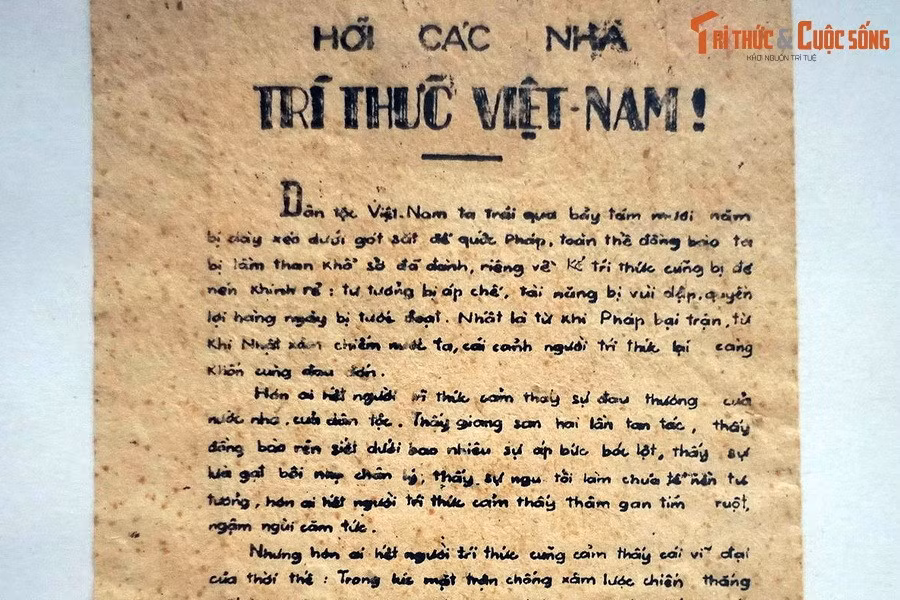 TRI THỨC & CUỘC SỐNG
KHƠI NGUỒN TRI TUỆ
HỠI CÁC NHÀ
TRÍ THỨC VIỆT-NAM !
Dân tộc Việt-Nam ta trải qua bảy tám mươi năm
bị dày xéo dưới gót sắt đế quốc Pháp, toàn thể đồng bào ta
bị lầm than khổ sở đã đành, riêng về kẻ trí thức cũng bị đè
nén khinh rẻ : tư tưởng bị áp chế, tài năng bị vùi dập, quyền
lợi hàng ngày bị tước đoạt. Nhất là từ khi Pháp bại trận, từ
khi Nhật xâm chiếm nước ta, cái cảnh người trí thức lại càng
khốn cùng đau đớn.
Hơn ai hết người trí thức cảm thấy sự đau thương của
nước nhà, của dân tộc. Thấy giang san hai lần tan tác, thấy
đồng bào rên siết dưới bao nhiêu sự áp bức bóc lột, thấy sự
lừa gạt bôi nhọ chân lý, thấy sự ngu tối làm chúa tể nền tư
tưởng, hơn ai hết người trí thức cảm thấy thâm gan tím ruột,
ngậm ngùi căm tức.
Nhưng hơn ai hết người trí thức cũng cảm thấy cái vĩ đại
của thời thế : Trong lúc mặt trận chống xâm lược chiến thắng